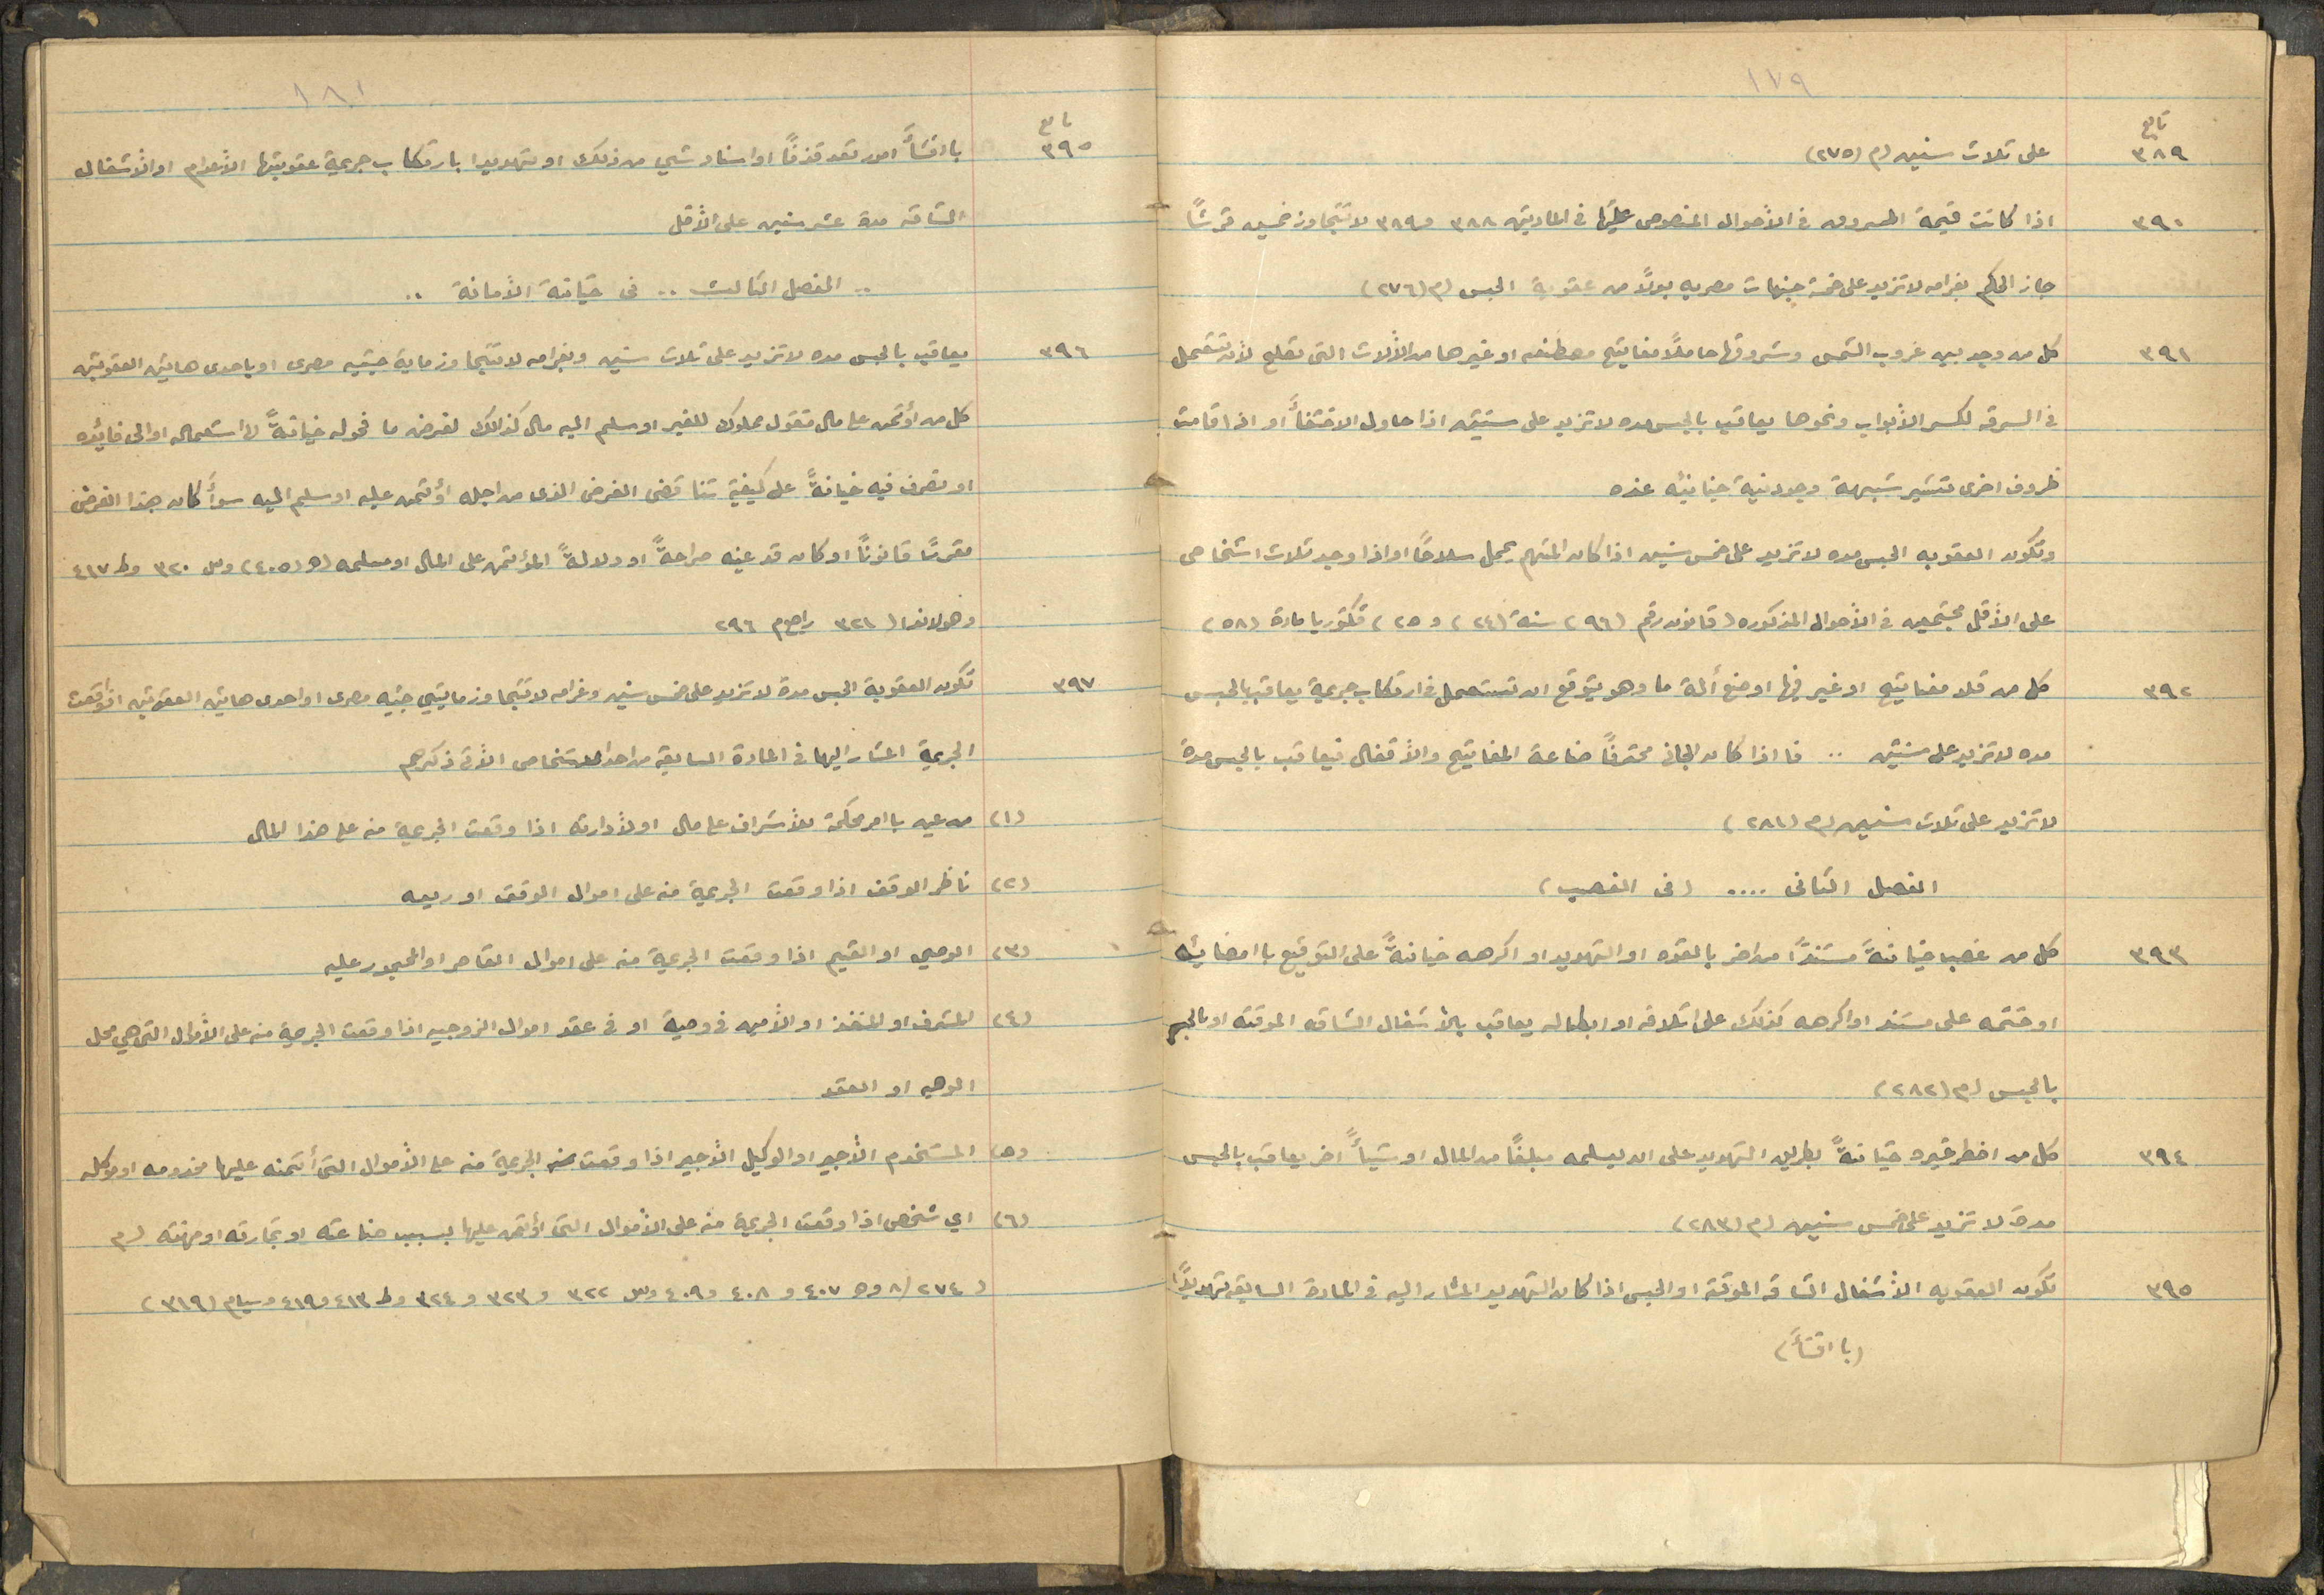 ١٧٩
تابع
٣٨٩ على ثلاث سنين (م ٢٧٥)
٣٩٠ اذا كانت قيمة المسروق في الأحوال المنصوص عليها في المادتين ٣٨٨ و٣٨٩ لا تتجاوز خمسين قرشاً
جاز الحكم بغرامه لا تزيد على خمسة جنيهات مصريه بدلاً من عقوبة الحبس (م ٢٧٦)
٣٩١ كل من وجد بين غروب الشمس وشروقها حاملاً مفاتيح مصطنعه او غيرها من الألات التى تصلح لأن تستعمل
في السرقه لكسر الأبواب ونحوها يعاقب بالحبس مده لا تزيد على سنتين اذا حاول الاختفاءً او اذا قامت
ظروف اخرى تثير شبهة وجود نية جنائيه عنده
وتكون العقوبه الحبس مده لا تزيد على خمس سنين اذا كان المتهم يحمل سلاحاً او اذا وجد ثلاث اشخاص
على الأقل مجتمعين في الأحوال المذكوره (قانون رقم (٢٩٦) سنة (٢٤) و ٢٥) فكتوريا مادة (٥٨)
٣٩٢ كل من قلد مفاتيح او غير فيها او صنع ألة ما وهو يتوقع ان تستعمل في ارتكاب جريمة يعاقب بالحبس
مده لا تزيد على سنتين .. فا اذا كان الجانى محترفاً صناعة المفاتيح والأقفال فيعاقب بالحبس مدة
لا تزيد على ثلاث سنين (م ٢٨١)
الفصل الثانى .... (فى الغصب)
٣٩٣ كل من غصبا خيانةً مستنداً من اخر بالقوه او التهديد او اكرهه خيانةً على التوقيع با امضائه
او ختمه على مستند او اكرهه كذلك على اتلافه او ابطاله يعاقب بالأشغال الشاقه الموقته او بالحبس
بالحبس (م ٢٨٢)
٣٩٤ كل من اضطر غيره خيانةً بطريق التهديد على ان يسلمه مبلغاً من المال او شيأً اخر يعاقب بالحبس
مدة لا تزيد على خمس سنين (م ٢٨٣)
٣٩٥ تكون العقوبه الأشغال الشاقه الموقته او الحبس اذا كان التهديد المشار اليه في المادة السابقه تهديداً
(با افشأ)
١٨١
تابع
٣٩٥ با افشأً امور تعد قذفاً او اسناد شي من ذلك او تهديدا بارتكاب جريمة عقوبتها الأعدام او الأشغال
الشاقه مدة عشر سنين على الأقل
.. الفصل الثالث .. فى خيانة الأمانة ..
٣٩٦ يعاقب بالحبس مده لا تزيد على ثلاث سنين وبغرامه لا تتجاوز ماية جنيه مصرى او باحدى هاتين العقوبتين
كل من أؤتمن على مال منقول مملوك للغير او سلم اليه مال كذلك لغرض ما فحوله خيانةً لا استعماله او الى فائده
او تصرف فيه خيانةً على كيفية تناقض الغرض الذى من اجله أؤتمن عليه او سلم اليه سوأً كان هذا الغرض
مقرراً قانوناً او كان قد عينه صراحةً او دلالةً المؤتمن على المال او مسلمه (ه ٤٠٥) وس ٣٢٠ وط ٤١٧
وهولاندا (٣٢١ راجع م ٢٩٦
٣٩٧ تكون العقوبة الحبس مدة لا تزيد على خمس سنين وغرامه لا تتجاوز مايتي جنيه مصرى او احدى هاتين العقوبتين اذا وقعت
الجريمة المشار اليها في المادة السابقه من احد الاشخاص الأتى ذكرهم
(١) من عين با امر محكمة للأشراف على مال او لأدارته اذا وقعت الجريمة منه على هذا المال
(٢) ناظر الوقف اذا وقعت الجريمة منه على اموال الوقف او ريعه
(٣) الوصي او القيم اذا وقعت الجريمة منه على اموال القاصر او المحجور عليه
(٤) المشرف او المنفذ او الأمين في وصية او في عقد اموال الزوجيه اذا وقعت الجريمة منه على الأموال التى هي محل
الوصيه او العقد
(٥) المستخدم الأجير او الوكيل الأجير اذا وقعت منه الجريمة منه على الأموال التى أئتمنه عليها مخدومه او موكله
(٦) اي شخص اذا وقعت الجريمة منه على الأموال التى أؤتمن عليها بسبب صناعته او تجارته او مهنته (م
(٢٧٤/٨ وه ٤٠٧ و ٤٠٨ و ٤٠٩ وس ٣٢٢ و ٣٢٣ و ٣٢٤ وط ٤١٣ و٤١٩ وسيام (٣١٩)